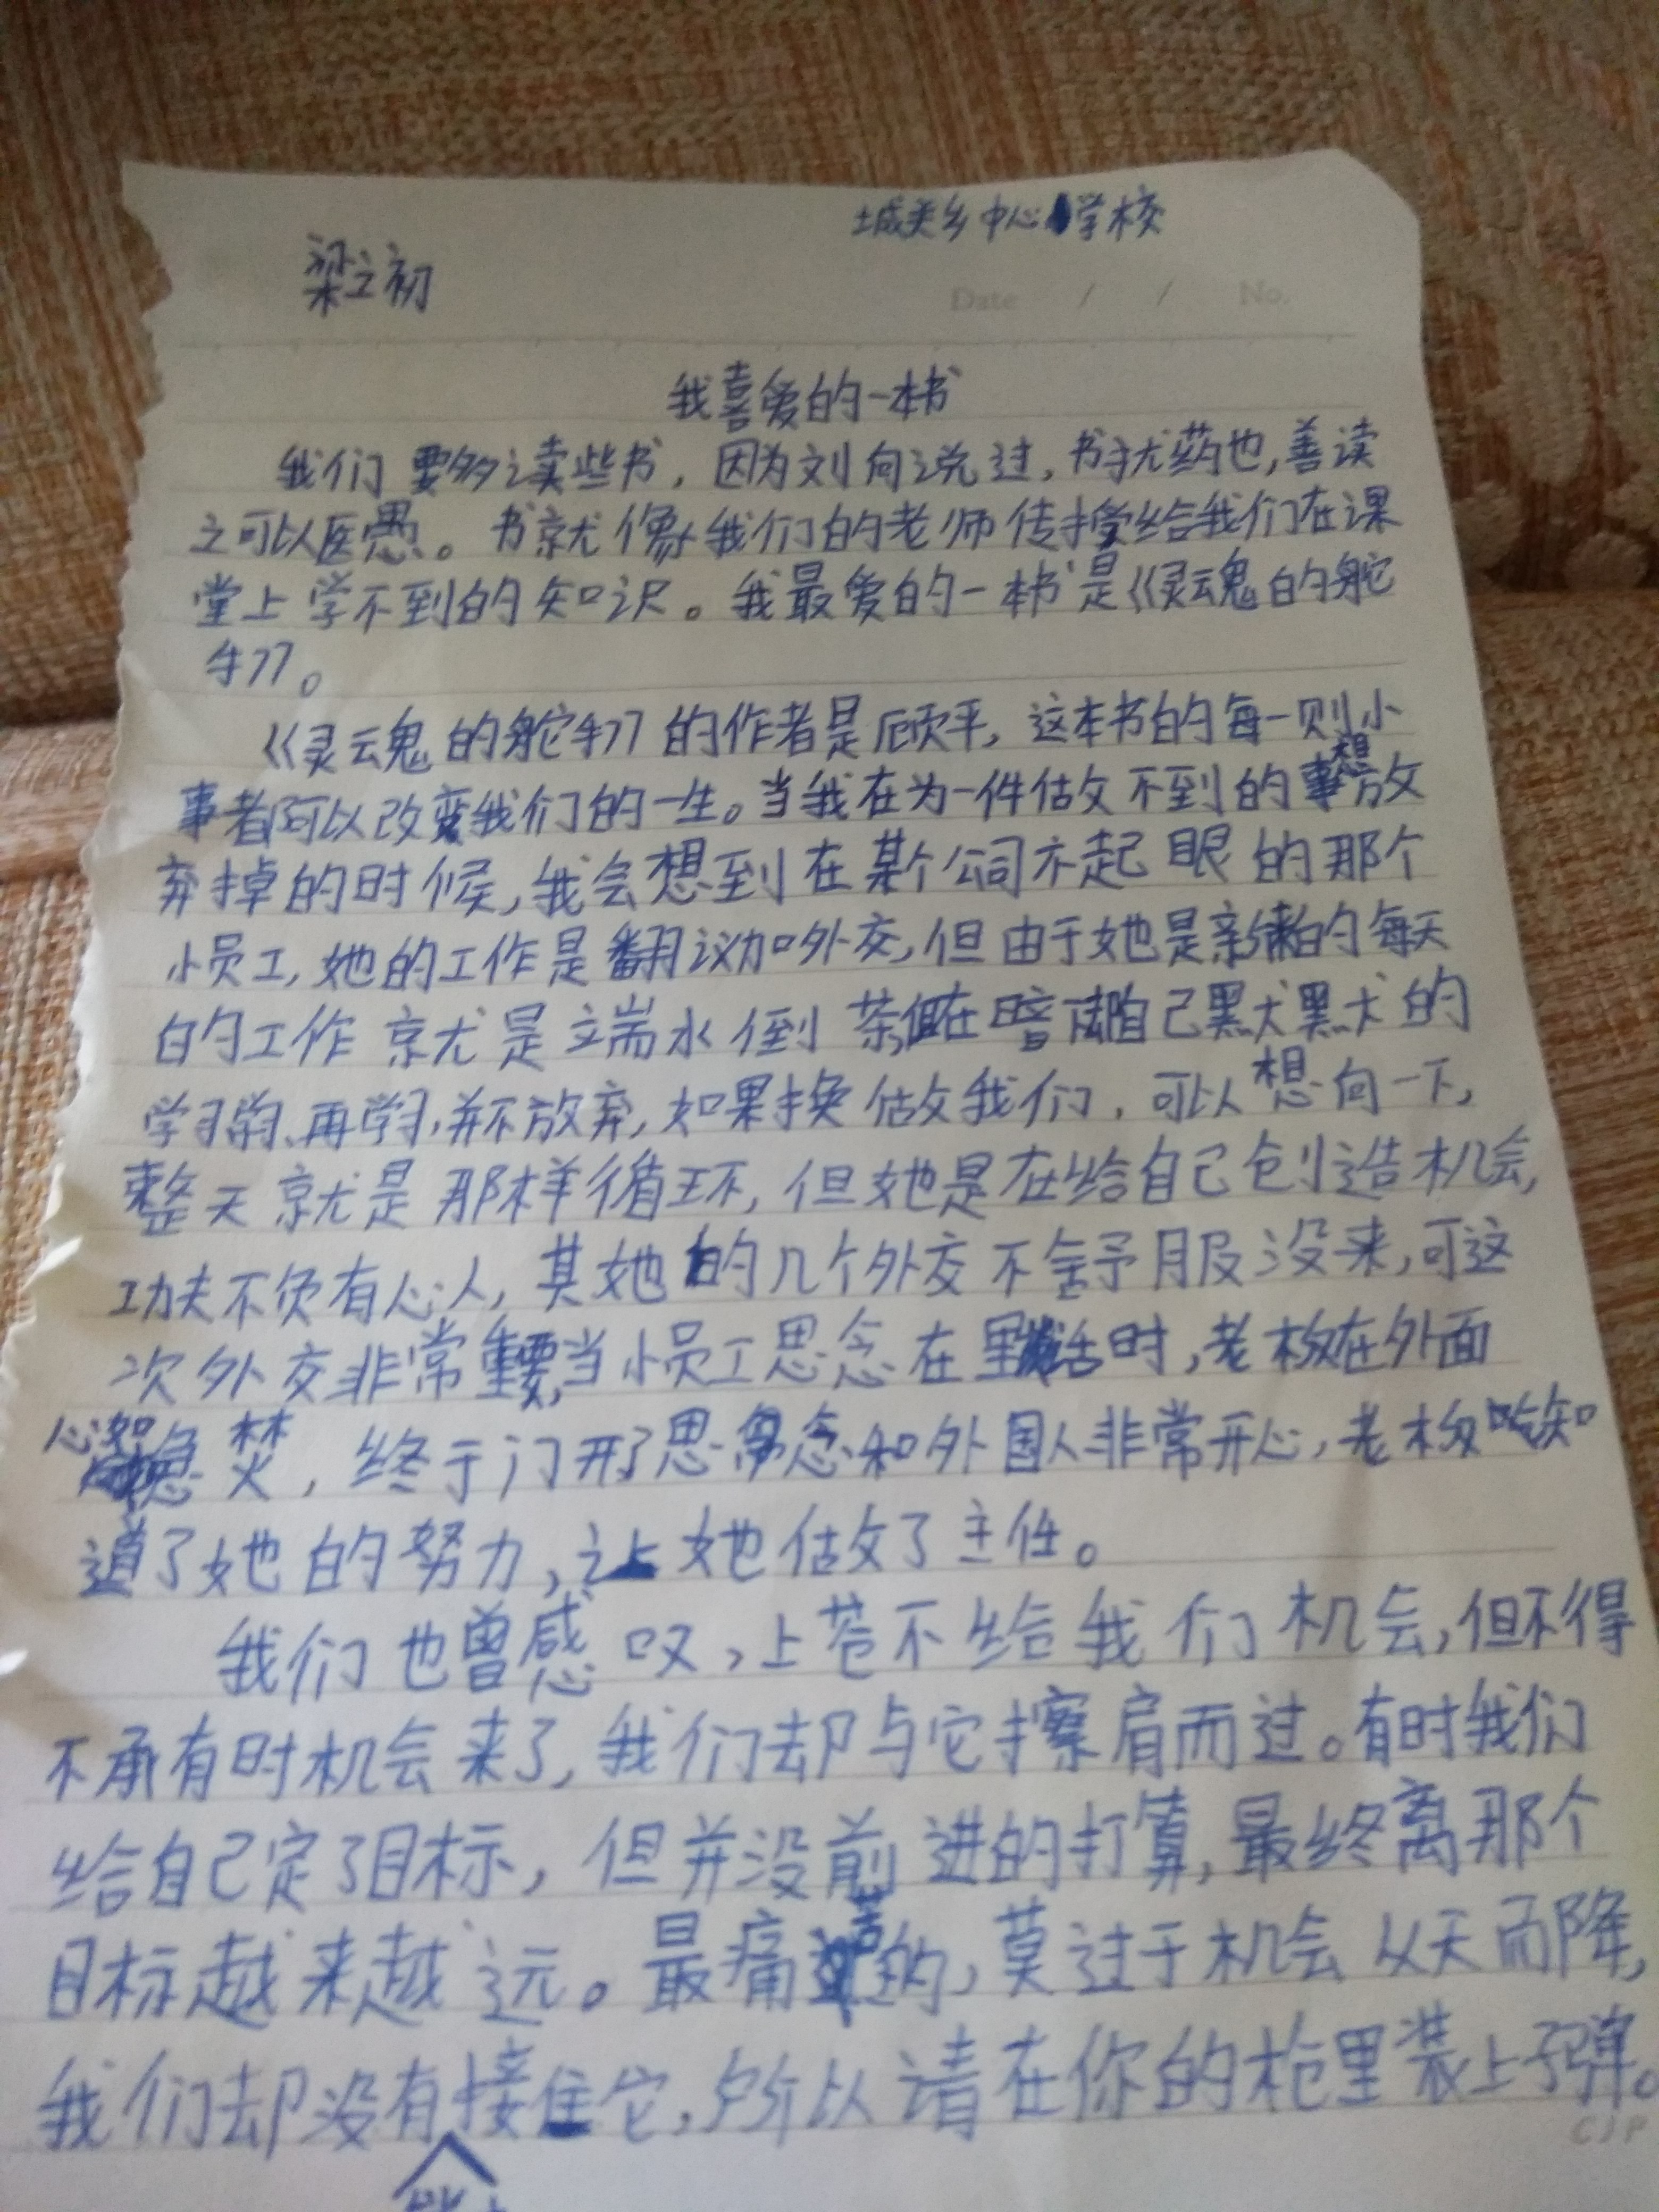 城关乡中心学校
梁之初
Date / / No.
我喜爱的一本书
我们要多读些书，因为刘向说过，书犹药也，善读
之可以医愚。书就像我们的老师传授给我们在课
堂上学不到的知识。我最爱的一本书是《灵魂的舵
手》。
《灵魂的舵手》的作者是顾平，这本书的每一则小
事都可以改变我们的一生。当我在为一件做不到的事想放
弃掉的时候，我会想到在某个公司不起眼的那个
小员工，她的工作是翻议和外交，但由于她是新来的每天
的工作就是端水倒茶，但在暗自己默默的
学习，再学习，并不放弃，如果换做我们，可以想向一下，
整天就是那样循环，但她是在给自己创造机会，
功夫不负有心人，其她的几个外交不舒服没来，可这
次外交非常重要，当小员工思念在里时，老板在外面
心如焚，终于门开了思念和外国人非常开心，老板知
道了她的努力，让她做了主任。
我们也曾感叹，上苍不给我们机会，但不得
不承有时机会来了，我们却与它擦肩而过。有时我们
给自己定了目标，但并没前进的打算，最终离那个
目标越来越远。最痛苦的，莫过于机会从天而降，
我们却没有接住它，所以请在你的枪里装上子弹。
CJP